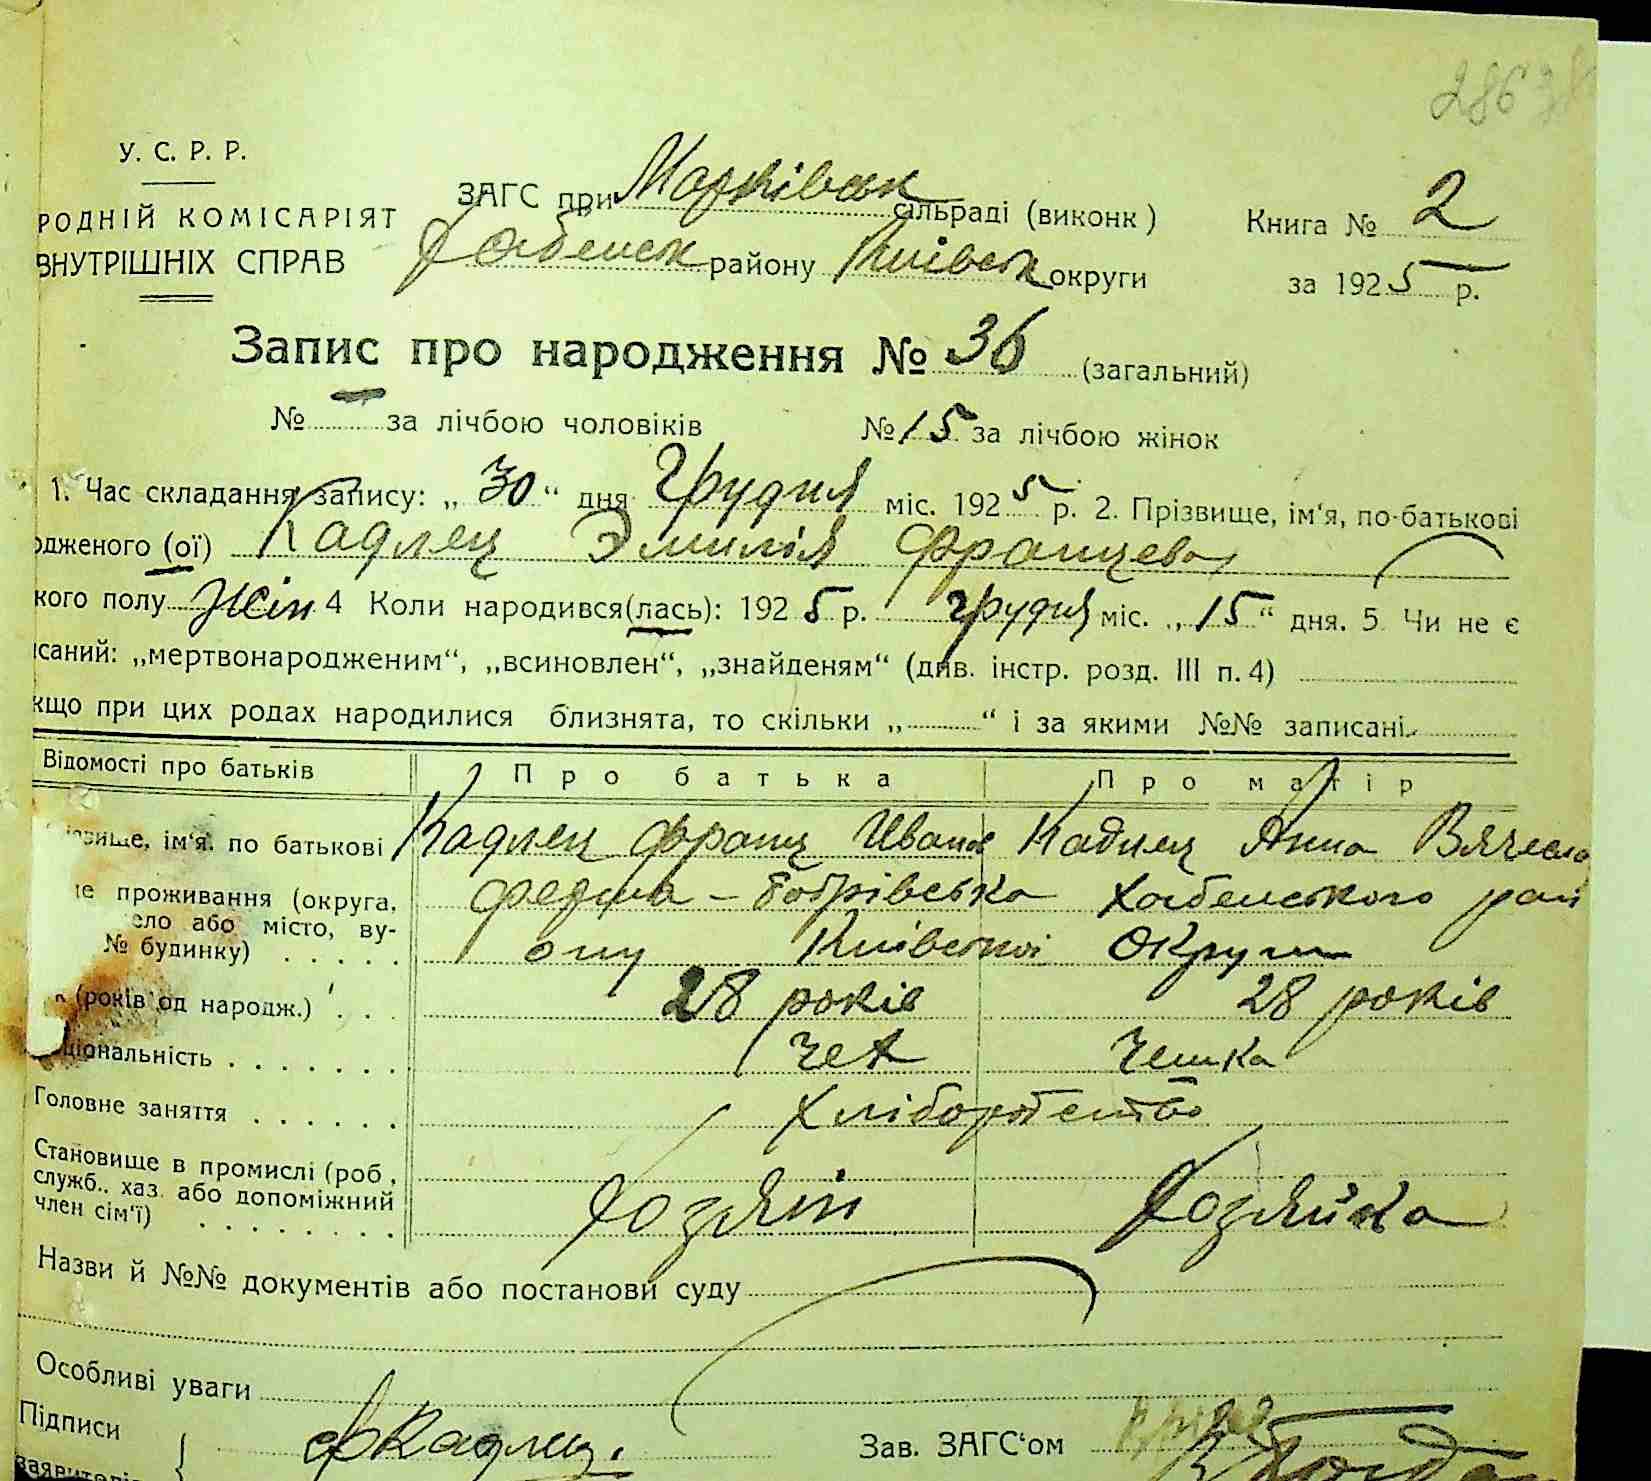 286
У. С. Р. Р.
РОДНІЙ КОМІСАРІЯТ
ВНУТРІШНІХ СПРАВ
ЗАГС при Марківськ сільраді (виконк)
Хабенск району Київськ округи
Книга № 2
за 1925 р.
Запис про народження № 36 (загальний)
№ — за лічбою чоловіків № 15 за лічбою жінок
1. Час складання запису: „30“ дня Грудня міс. 1925 р. 2. Прізвище, ім'я, по-батькові
одженого (ої) Кадлец Эмилія Францева
кого полу жін 4 Коли народився(лась): 1925 р. грудня міс. „15“ дня. 5. Чи не є
исаний: „мертвонародженим“, „всиновлен“, „знайденям“ (див. інстр. розд. III п. 4)
кщо при цих родах народилися близнята, то скільки „ “ і за якими №№ записані
Відомості про батьків Про батька Про матір
звище, ім'я. по батькові Кадлец Франц Иванов Кадлец Анна Вячесла
це проживання (округа, Ферма - Бобрівська Хабенського рай
ело або місто, ву- ону Київської Округи
№ будинку)
к (років од народж.) 28 років 28 років
ціональність Чех Чешка
Головне заняття Хліборобство
Становище в промислі (роб., Хозяїн Хозяйка
служб., хаз. або допоміжний
член сім'ї)
Назви й №№ документів або постанови суду
Особливі уваги
Підписи ФКадлец.
заявителів
Зав. ЗАГС'ом